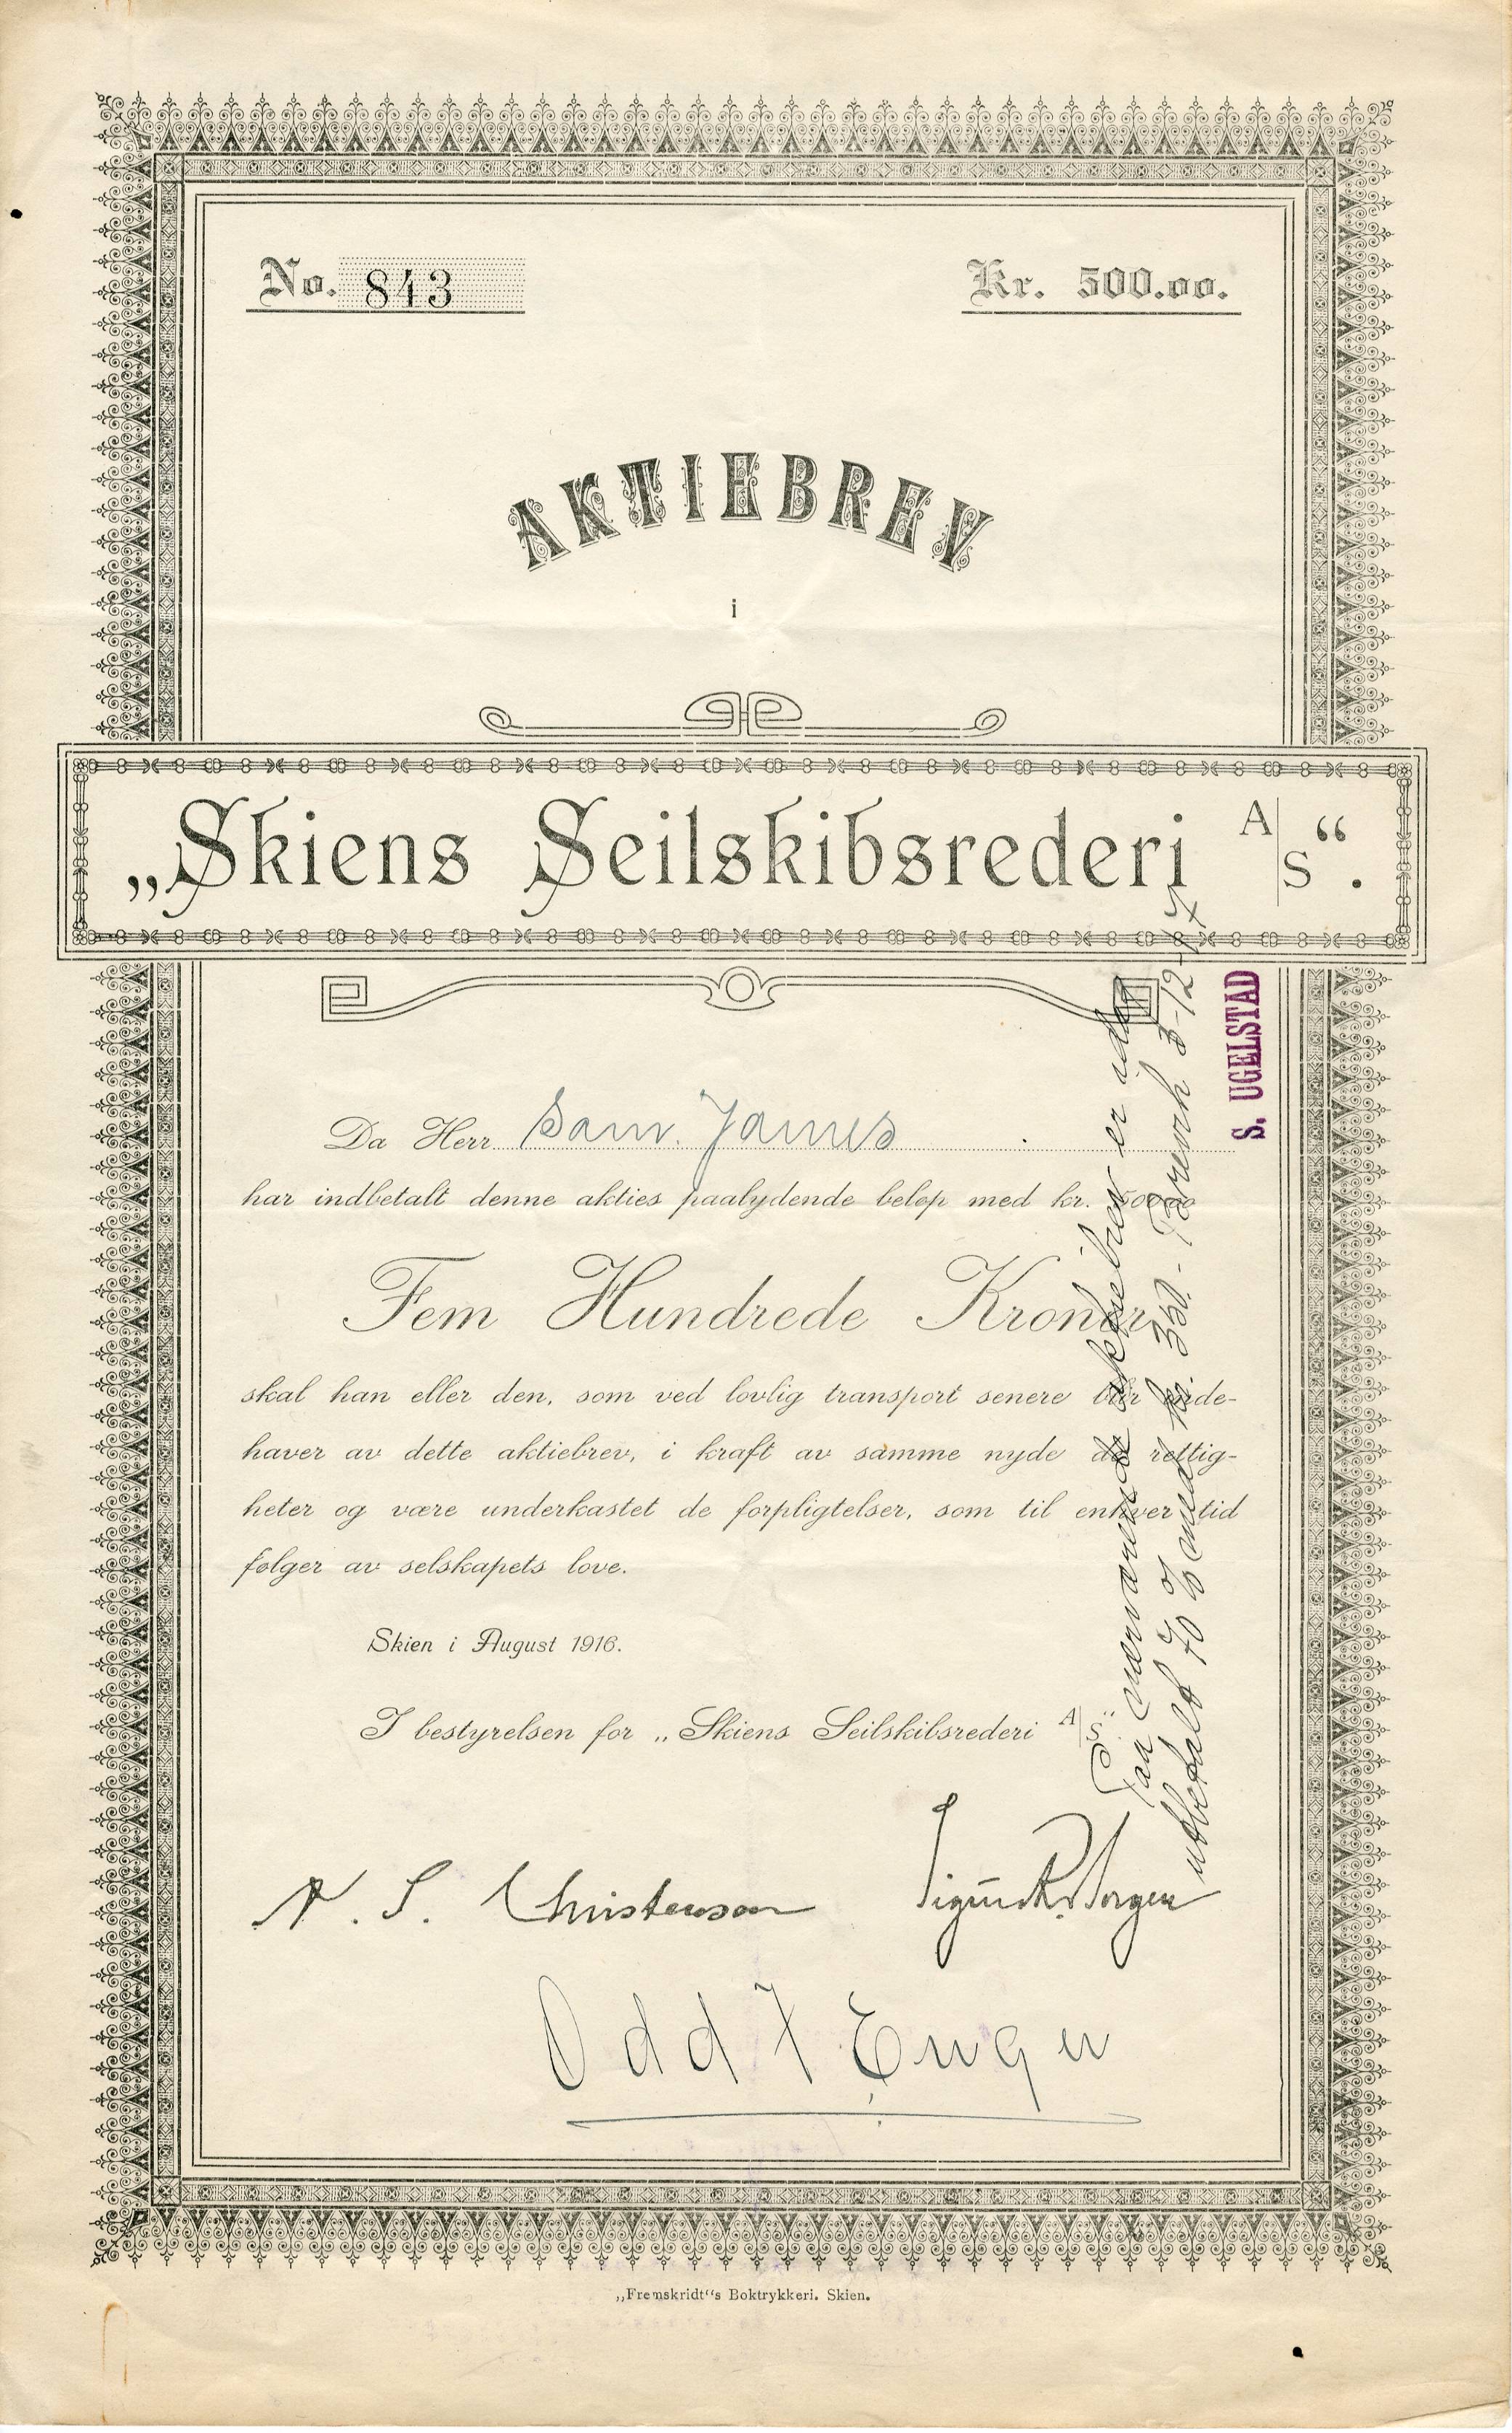 No. 843
Kr. 500.00.
AKTIEBREV
i
„Skiens Seilskibsrederi A/S“.
Da Herr Sam. James
har indbetalt denne akties paalydende beløp med kr. 500.00
Fem Hundrede Kroner,
skal han eller den, som ved lovlig transport senere blir inde-
haver av dette aktiebrev, i kraft av samme nyde de rettig-
heter og være underkastet de forpligtelser, som til enhver tid
følger av selskapets love.
Skien i August 1916.
I bestyrelsen for „Skiens Seilskibsrederi A/S“
N. S. Christensen
Odd
Paa nærværende aktiebrev er idag
utbetalt 70 % med kr 350.- 3-12-17
S. UGELSTAD
„Fremskridt“s Boktrykkeri. Skien.